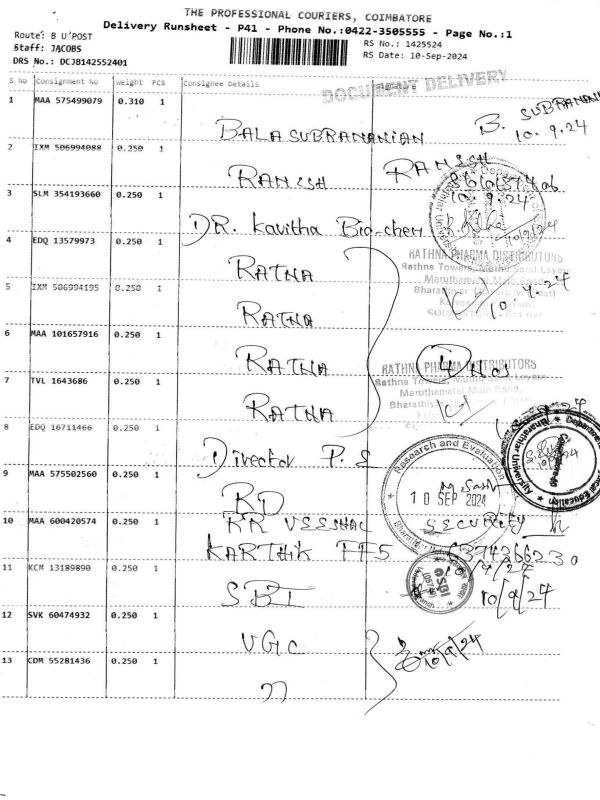 THE PROFESSIONAL COURIERS, COIMBATORE
Delivery Runsheet - P41 - Phone No.:0422-3505555 - Page No.:1
Route: B U'POST
Staff: JACOBS
DRS No.: DCJB142552401
RS No.: 1425524
RS Date: 10-Sep-2024
S No Consignment No Weight PCS Consignee Details Signature
DOCUMENT DELIVERY
1 MAA 575499079 0.310 1
BALASUBRAMANIAN B. SUBRAMANI
10.9.24
2 IXM 506994088 0.250 1
RAMESH RAMESH
10.9.24
3 SLM 354193660 0.250 1
DR. Kavitha Bio-chem
10/9/24
4 EDQ 13579973 0.250 1
RATNA
RATHNA PHARMA DISTRIBUTORS
Rathna Towers, Muthu Saral Layout
Maruthamalai Main Road,
5 IXM 506994195 0.250 1
RATNA
10.9.24
6 MAA 101657916 0.250 1
RATNA 4 NOS
RATHNA PHARMA DISTRIBUTORS
Rathna Towers, Muthu Saral Layout
Maruthamalai Main Road,
7 TVL 1643686 0.250 1
RATNA
8 EDQ 16711466 0.250 1
Director P. S
Research and Evaluation
10 SEP 2024
9 MAA 575502560 0.250 1
RD
10 MAA 600420574 0.250 1
RR SECURITY
KARTHIK FF5 6374266230
10/9/24
11 KCM 13189890 0.250 1
SBI
SBI
10/9/24
12 SVK 60474932 0.250 1
UGC
10/9/24
13 CDM 55281436 0.250 1